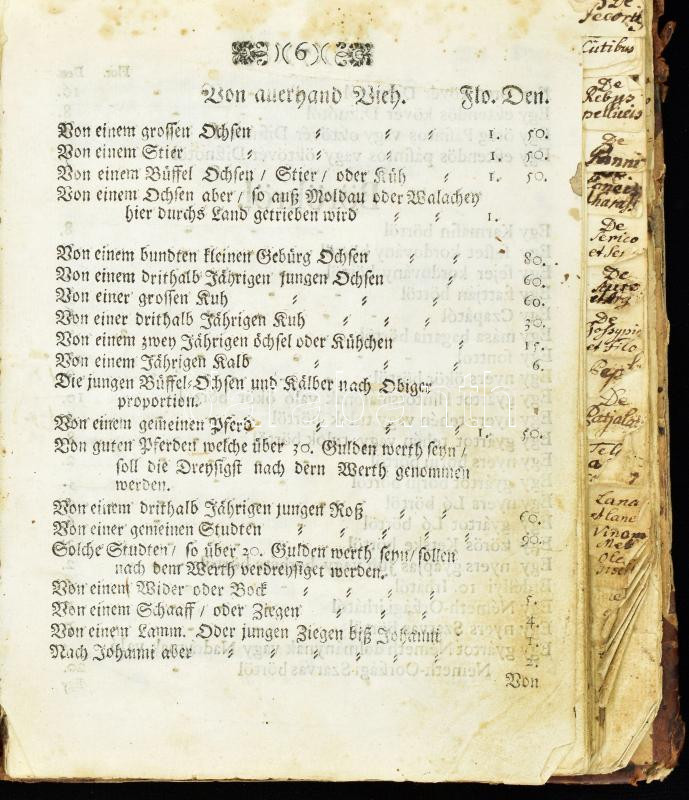 )(6)(
Von allerhand Vieh. Flo. Den.
Von einem grossen Ochsen 1. 50.
Von einem Stier 1. 50.
Von einem Büffel Ochsen / Stier / oder Küh 1. 50.
Von einem Ochsen aber / so auß Moldau oder Walachey
hier durchs Land getrieben wird 1.
Von einem bundten kleinen Gebürg Ochsen 80.
Von einem drithalb Jährigen jungen Ochsen 60.
Von einer grossen Kuh 60.
Von einer drithalb Jährigen Kuh 30.
Von einem zwey Jährigen öchsel oder Kühchen 15.
Von einem Jährigen Kalb 6.
Die jungen Büffel-Ochsen und Kälber nach Obiger
proportion.
Von einem gemeinen Pferd 1. 50.
Von guten Pferden welche über 30. Gulden werth seyn /
soll die Dreysigst nach dern Werth genommen
werden.
Von einem drithalb Jährigen jungen Roß 60.
Von einer gemeinen Studten 90.
Solche Studten / so über 20. Gulden werth seyn / sollen
nach dem Werth verdreysiget werden.
Von einem Wider oder Bock 5.
Von einem Schaaff / oder Ziegen 4.
Von einem Lamm. Oder jungen Ziegen biß Johanni 1.
Nach Johanni aber 2.
Von
De
Cutibus
De
Rebus
pelliceis
De
Panni
De
Serico
De
Auro
De
et Filo
De
Lana
Vinum